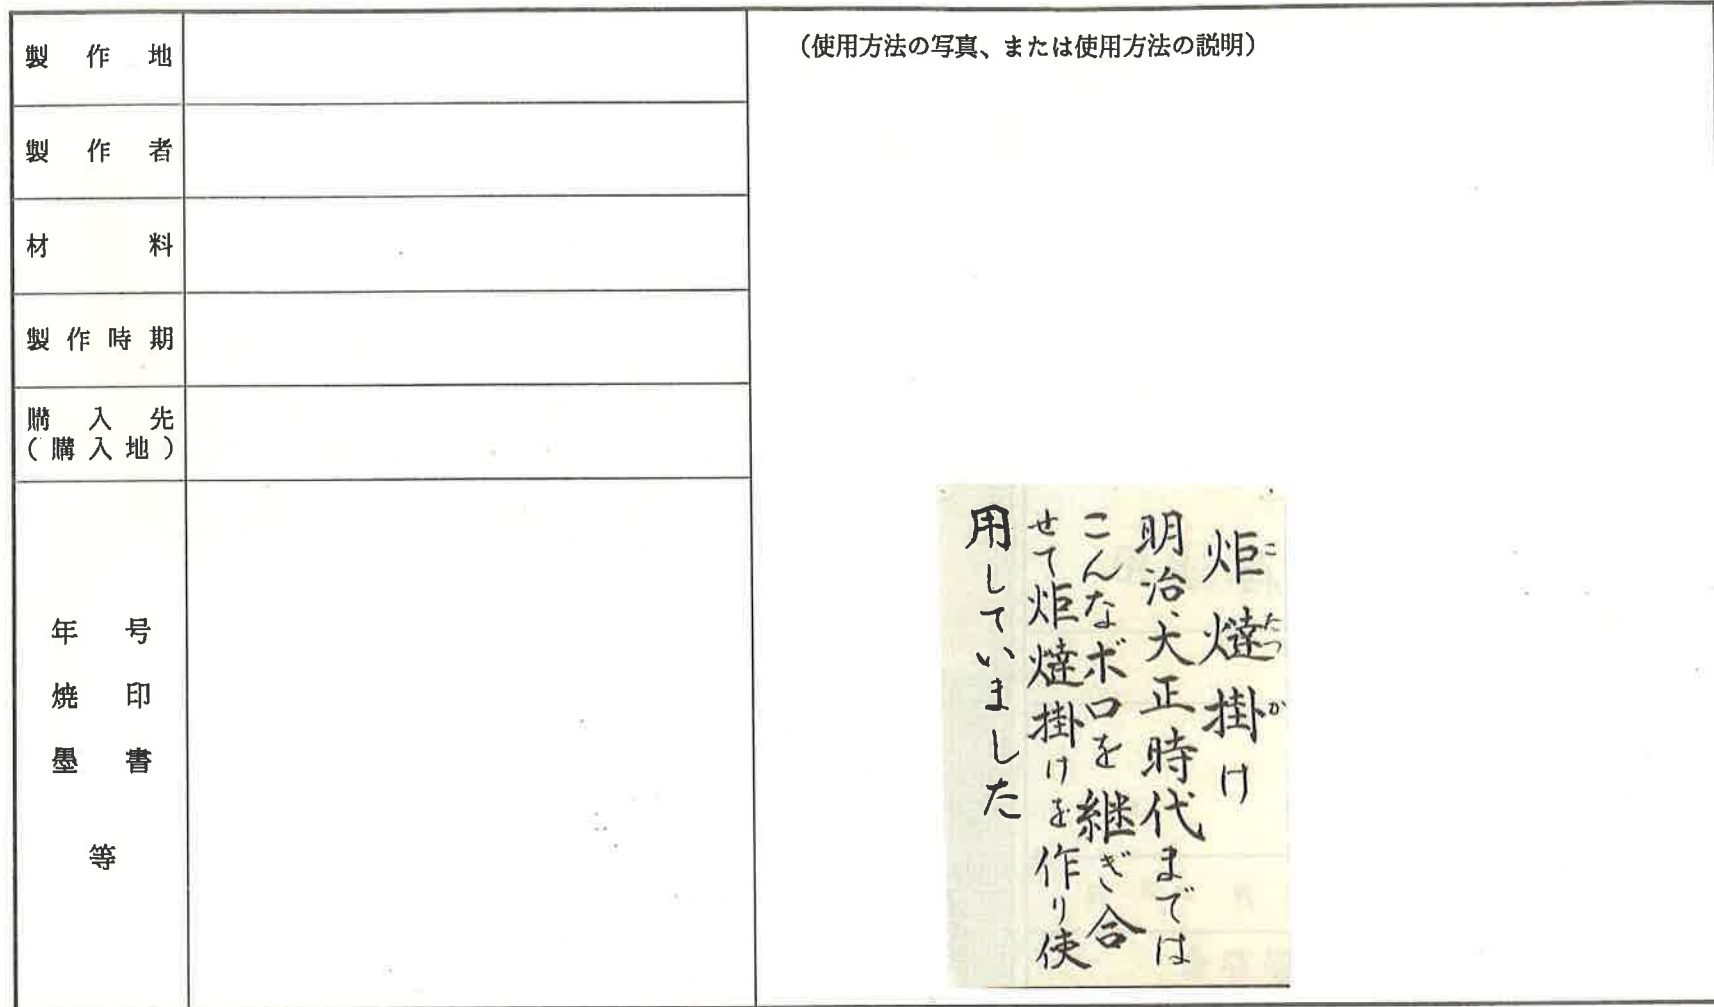 製作地
製作者
材料
製作時期
購入先
(購入地)
年号
焼印
墨書
等
(使用方法の写真、または使用方法の説明)
炬燵掛け
こたつか
明治、大正時代までは
こんなボロを継ぎ合
せて炬燵掛けを作り使
用していました